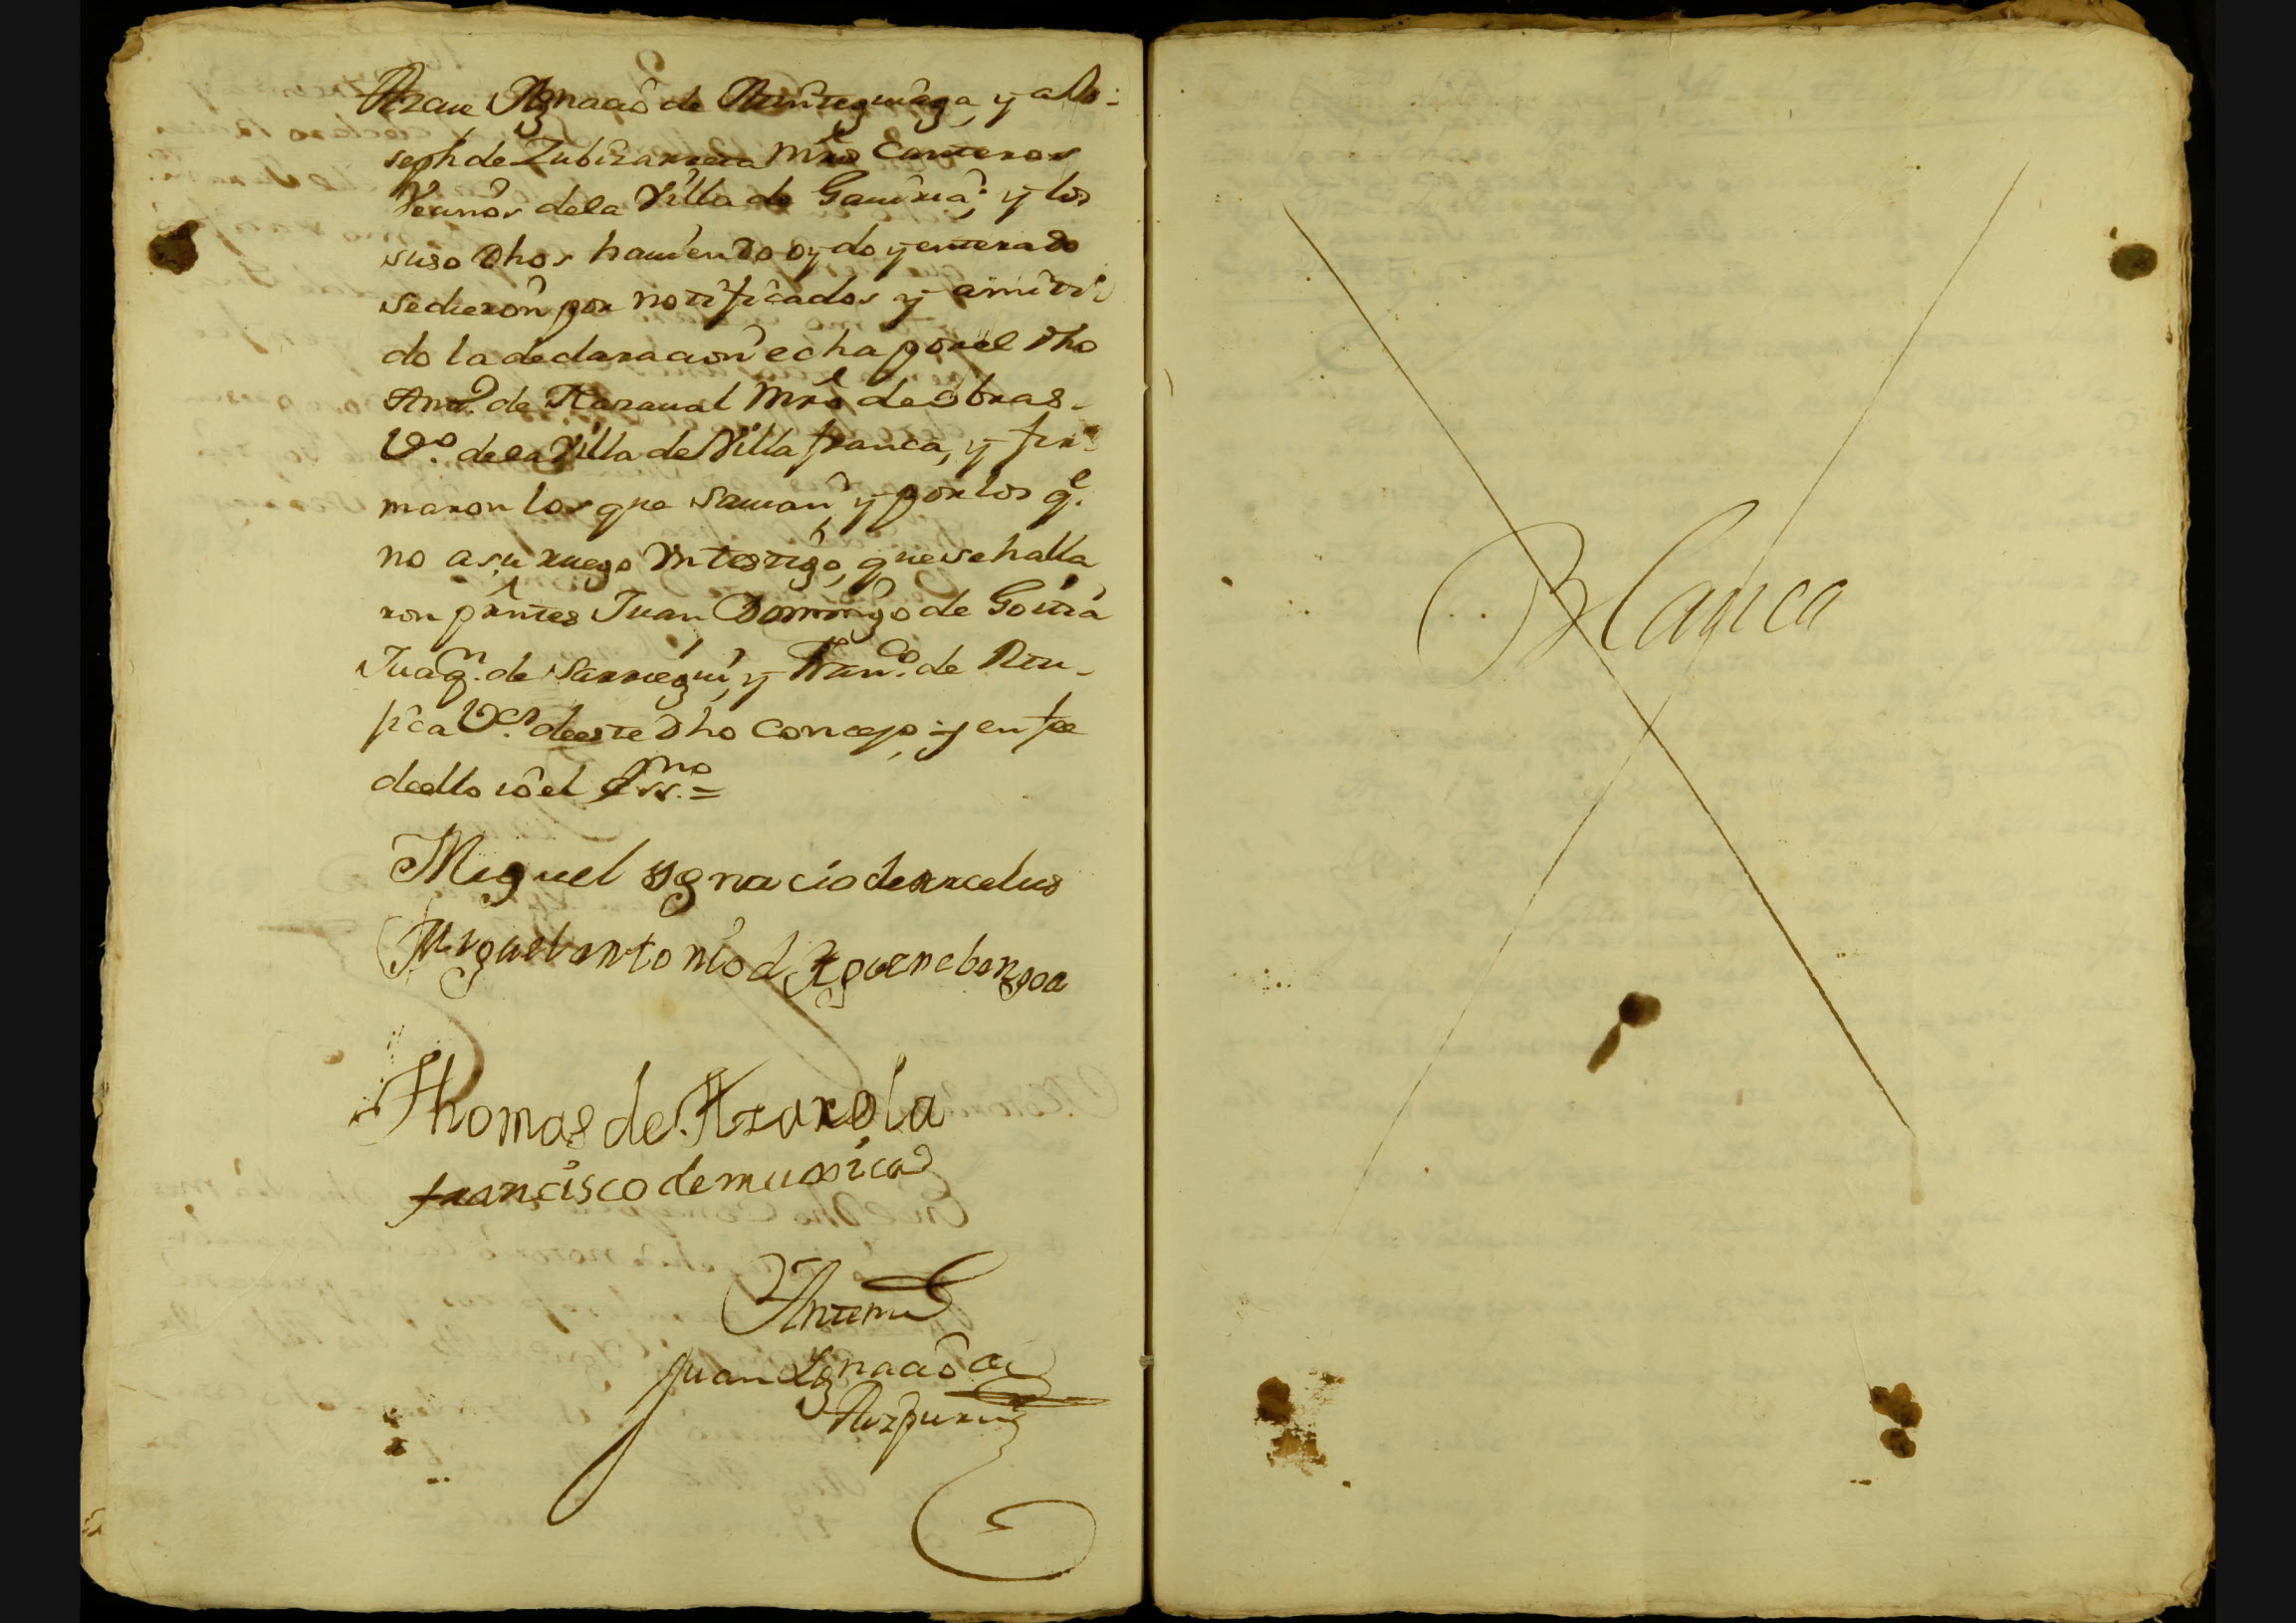 Ignacio de Aiuiteguiaga, y a Jo-
seph de Zubizarreta Mro Canteros
Vecinos dela Villa de Gauiria; y los
suso dhos hauiendo oydo y enterado
se dieron por notificados y amiti
do la declaracion echa por el dho
Anto. de Larraual Mro de obras
Vo. dela Villa de Villafranca, y fir-
maron los que sauian, y por los q.e
no a su ruego un testigo, que se halla
ron prntes Juan Domingo de Goitia
Juaqn. de Sarriegui, y Franco. de
Vos. de este dho Concejo; y en fee
de ello io el Ssno.=
Miguel ygnacio de arcelus
Miguel antonio d Aguerebengoa
Thomas de Azarola
francisco de muxica
Ante mi
Juan Ignacio de
Aizpuru
Blanca